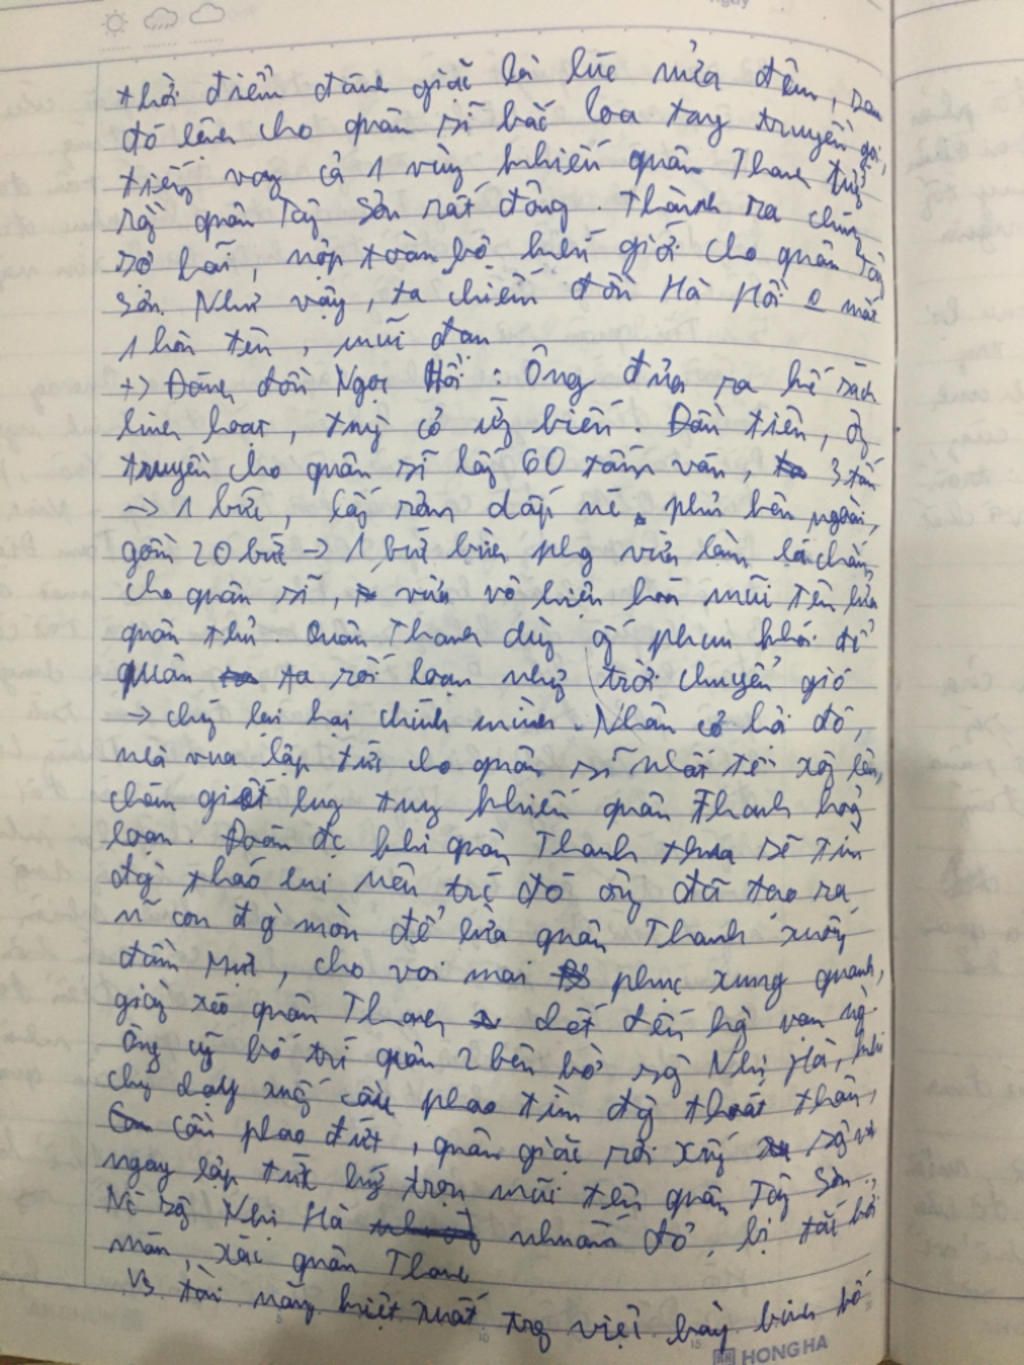 thời điểm đánh giặc là lúc nửa đêm, sau
đó lệnh cho quân sĩ bắc loa tay truyền gọi,
tiếng vang cả 1 vùng khiến quân Thanh tưởng
rằng quân Tây Sơn rất đông. Thành ra chúng
sợ hãi, nộp toàn bộ khí giới cho quân Tây
Sơn. Như vậy, ta chiếm đồn Hà Hồi o mất
1 hòn tên, mũi đạn
+) Đánh đồn Ngọc Hồi: Ông đưa ra kế sách
linh hoạt, tuỳ cơ ứng biến. Đầu tiên, ông
truyền cho quân sĩ lấy 60 tấm ván, 3 tấm
→ 1 bức, lấy rơm dấp nc phủ bên ngoài,
gồm 20 bức → 1 bức bình phg vừa làm lá chắn
cho quân sĩ, vừa vô hiệu hoá mũi tên của
quân thù. Quân Thanh dùng ống phun khói để
quân ta rối loạn nhưng trời chuyển gió
→ chúng lại hại chính mình. Nhân cơ hội đó,
nhà vua lập tức cho quân sĩ nhất tề xông lên,
chém giết lung tung khiến quân Thanh hoảng
loạn. Đoán đc khi quân Thanh thua sẽ tìm
đg tháo lui nên trc đó ông đã tạo ra
n~ con đg mòn để lừa quân Thanh xuống
đầm Mực, cho voi mai phục xung quanh,
giày xéo quân Thanh chết đến hàng vạn ng.
Ông cũng bố trí quân 2 bên bờ sông Nhị Hà, khi
chúng chạy xuống cầu phao tìm đg thoát thân,
cầu phao đứt, quân giặc rơi xuống sông và
ngay lập tức hứng trọn mũi tên quân Tây Sơn.
Nc sông Nhị Hà nhuốm đỏ, bị tắc bởi
máu, xác quân Thanh
Vs tài năng kiệt xuất trg việc bày binh bố
HONG HA